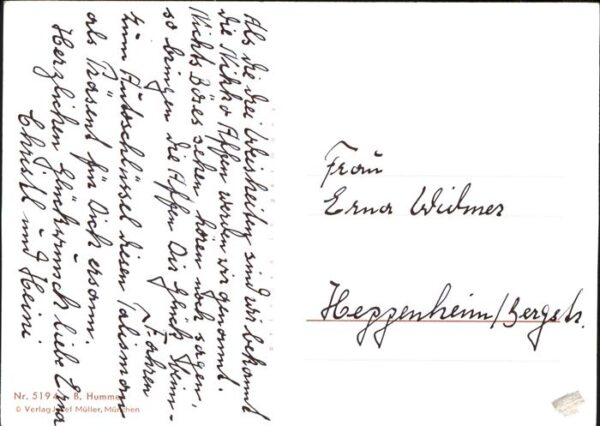 Als die drei Weisheiten sind wir bekannt
die Nikko Affen werden wir genannt.
Nichts Böses sehen, hören noch sagen,
so bringen die Affen Dir Glück beim-
Fahren
Zum Autoschlüssel diesen Talisman
als Präsent für Dich ersann.
Herzlichen Glückwunsch liebe Erna
Christl und Heini
Frau
Erna Widmer
Heppenheim/Bergstr.
Nr. 519 B. Hummel
© Verlag Josef Müller, München